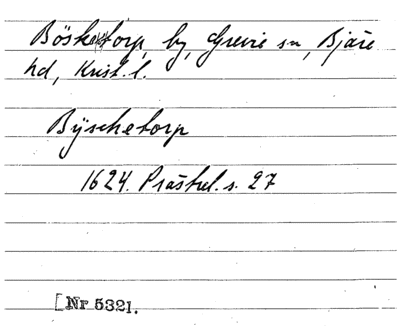 Bösketorp, by, Grevie sn, Bjäre
hd, Krist. l.
Byschetorp
1624. Prästrel. s. 27
[Nr 5321.